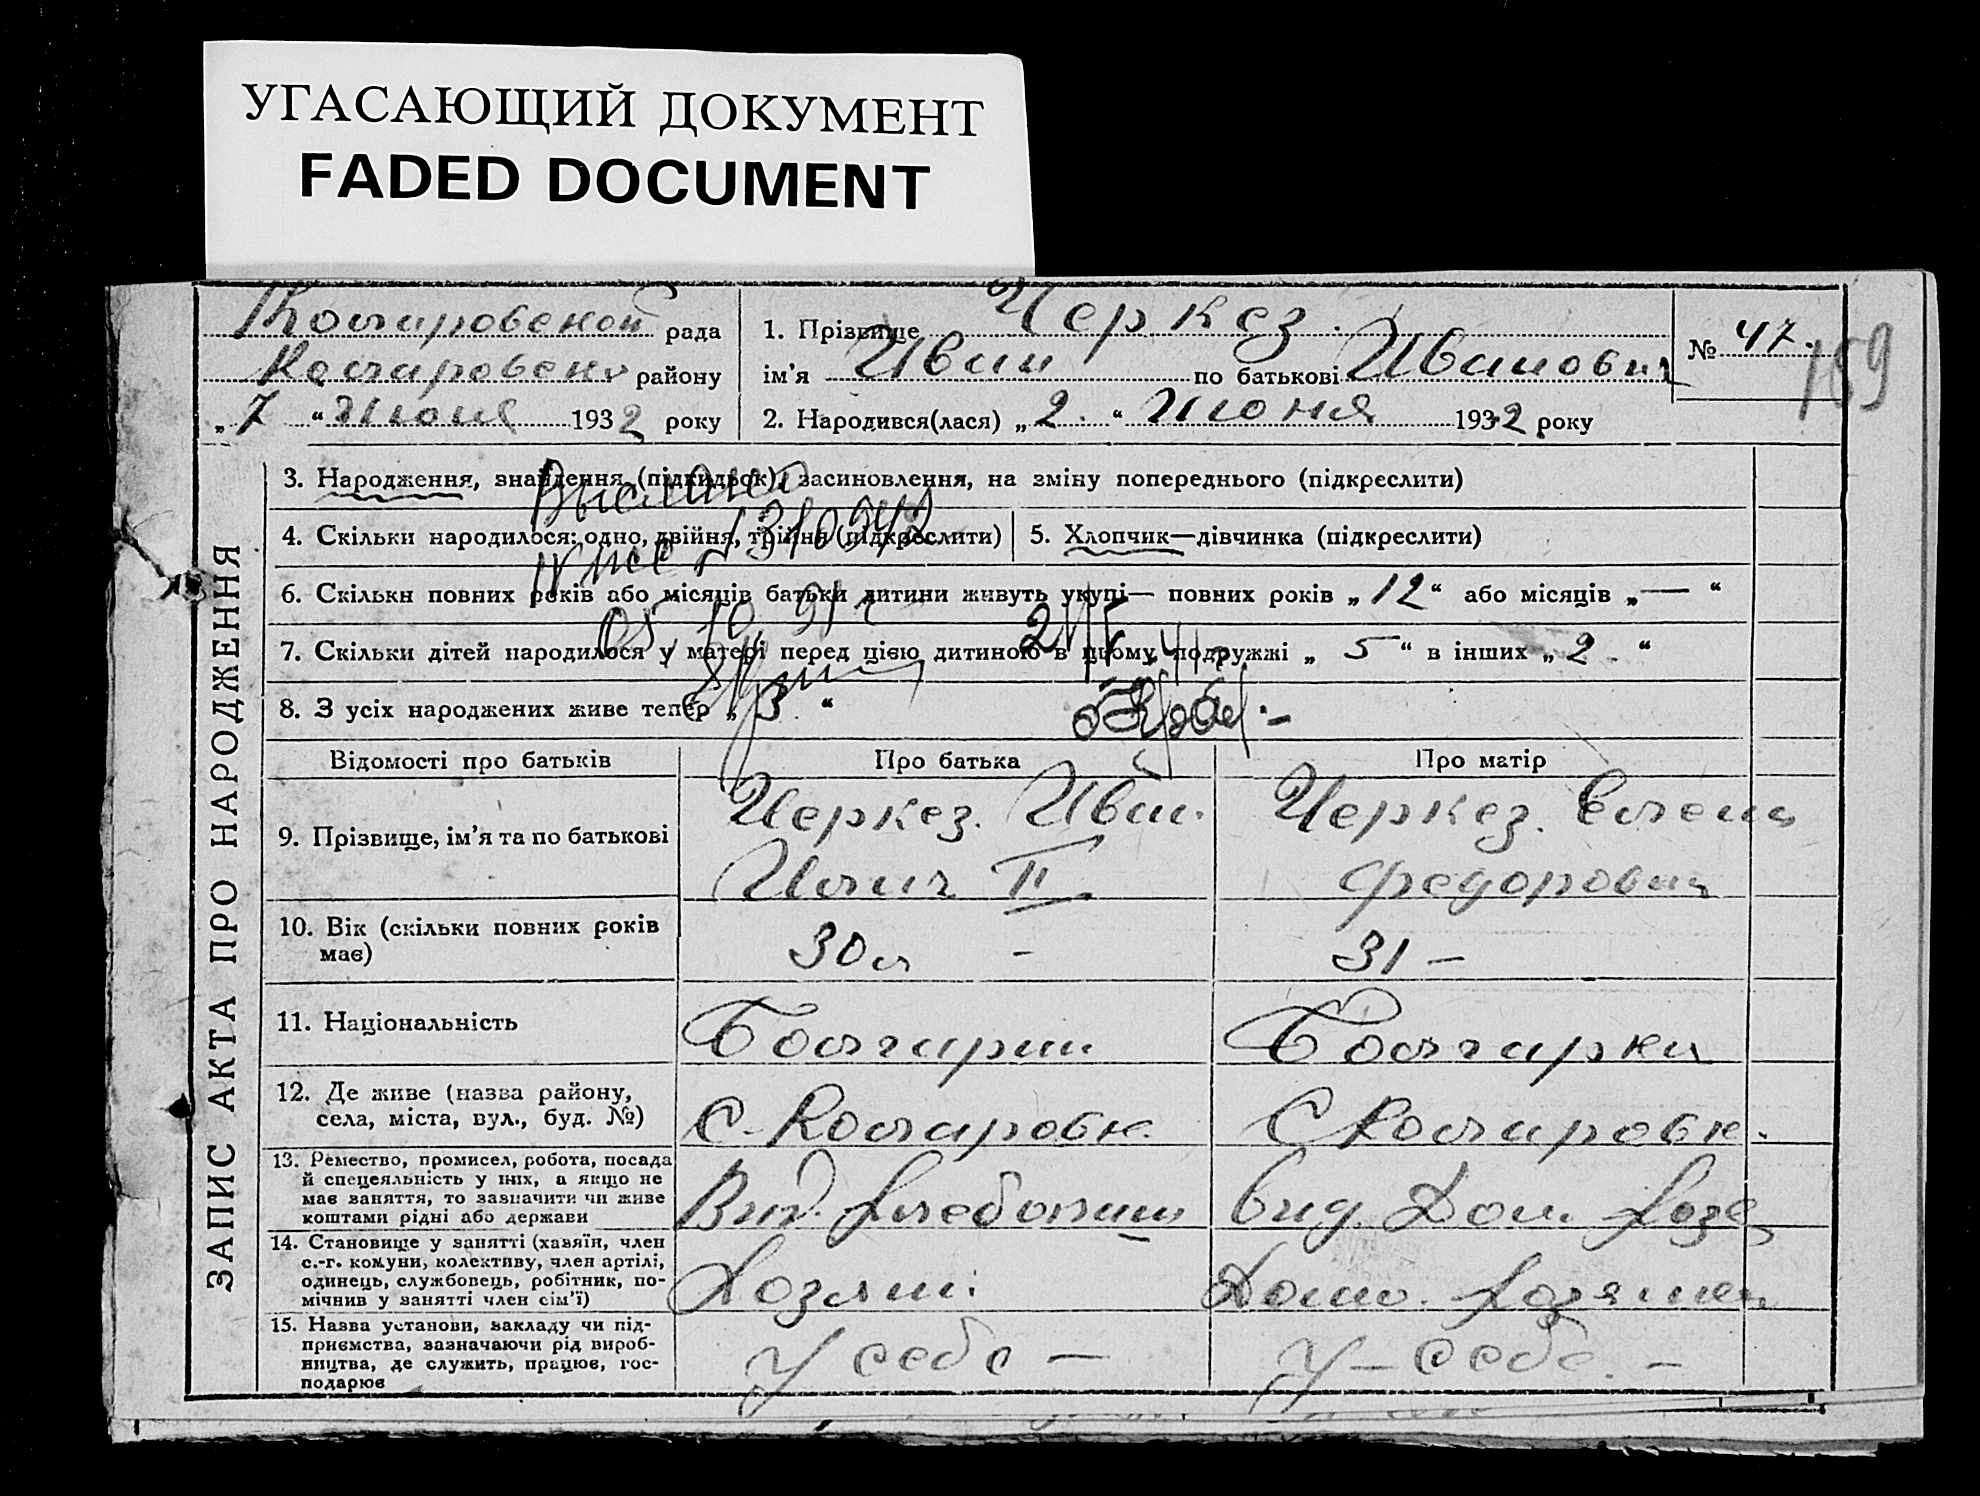 УГАСАЮЩИЙ ДОКУМЕНТ
FADED DOCUMENT
рада
району
„ 7 “ Июня 1932 року
1. Прізвище Черкез.
ім'я Иван по батькові Иванович
2. Народився(лася) „ 2. “ Июня 1932 року
№ 47.
159
ЗАПИС АКТА ПРО НАРОДЖЕННЯ
3. Народження, знайдення (підкидьок), засиновлення, на зміну попереднього (підкреслити)
4. Скільки народилося: одно, двійня, трійня (підкреслити)
5. Хлопчик—дівчинка (підкреслити)
6. Скільки повних років або місяців батьки дитини живуть укупі— повних років „ 12 “ або місяців „ — “
7. Скільки дітей народилося у матері перед цією дитиною в цьому подружжі „ 5 “ в інших „ 2 “
8. З усіх народжених живе тепер „ 3 “
Відомості про батьків
Про батька
Про матір
9. Прізвище, ім'я та по батькові
Черкез. Иван.
Ильич II
Черкез. Елена
Федоровна
10. Вік (скільки повних років
має)
30 л –
31 –
11. Національність
Болгарин
Болгарка
12. Де живе (назва району,
села, міста, вул., буд. №)
13. Ремество, промисел, робота, посада
й спецеяльність у них, а якщо не
має заняття, то зазначити чи живе
коштами рідні або держави
14. Становище у занятті (хазяїн, член
с.-г. комуни, колективу, член артілі,
одинець, службовець, робітник, по-
мічнив у занятті член сім'ї)
Хозяин.
Домо. Хозяйка
15. Назва установи, закладу чи під-
приємства, зазначаючи рід вироб-
ництва, де служить, працює, гос-
подарює
У себе —
У – себе. –